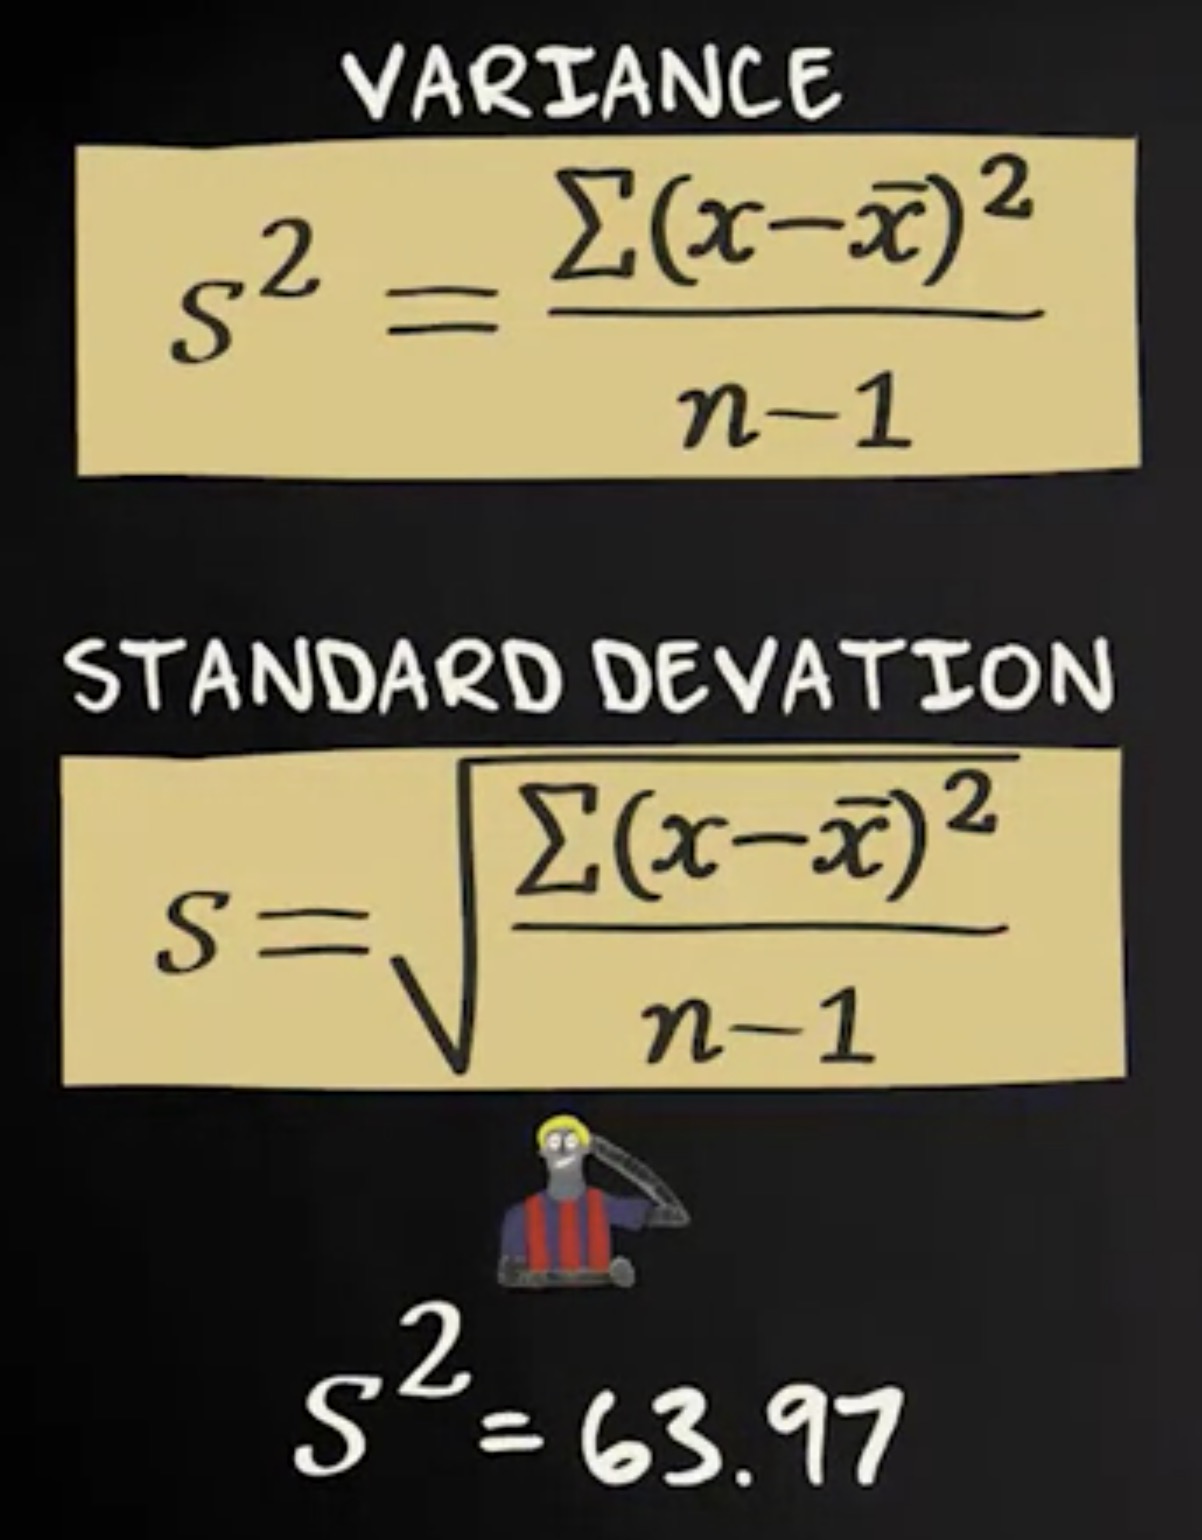 VARIANCE
s² = ∑(x−x̄)² / n−1
STANDARD DEVATION
s = √∑(x−x̄)² / n−1
s² = 63.97